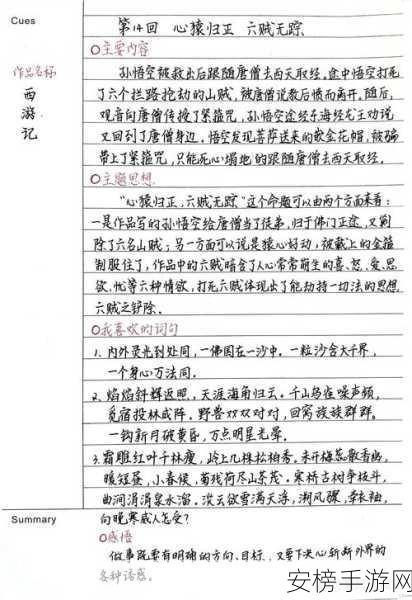 Cues
第14回 心猿归正 六贼无踪
○主要内容
作品名称
西游记
孙悟空被救出后跟随唐僧去西天取经。途中悟空打死
了六个拦路抢劫的山贼，被唐僧说教后愤而离开。随后，
观音向唐僧传授了紧箍咒，孙悟空途经东海经龙王劝说
又回到了唐僧身边。悟空发现菩萨送来的嵌金花帽，被骗
带上了紧箍咒，只能死心塌地的跟随唐僧去西天取经。
○主题思想
“心猿归正，六贼无踪”这个命题可以由两个方面来看：
一是作品写的孙悟空给唐僧当了徒弟，归于佛门正途，又剿
除了六名山贼；另一方面可以说是猿心好动，被戴上的金箍
制服住了，作品中的六贼暗含了人心常常萌生的喜、怒、爱、思、
欲、忧等六种情欲，打死六贼体现出了能劫持一切法的思想
六贼之铲除。
○我喜欢的词句
1、内外灵光到处同，一佛国在一沙中。一粒沙含大千界，
一个身心万法同。
2、焰焰斜辉返照，天涯海角归云。千山鸟雀噪声频，
觅宿投林成阵。野兽双双对对，回窝族族群群。
一钩新月破黄昏，万点明星光晕。
3、霜凋红叶千林瘦，岭上几株松柏秀。未开梅蕊散香幽，
暖短昼，小春候，菊残荷尽山茶茂。寒桥古树争枝斗，
曲涧涓涓泉水溜。淡云欲雪满天浮，朔风骤，牵衣袖，
Summary
向晚寒威人怎受？
○感悟
做事既要有明确的方向、目标，又要下决心斩断外界的
各种诱惑。
安榜手游网